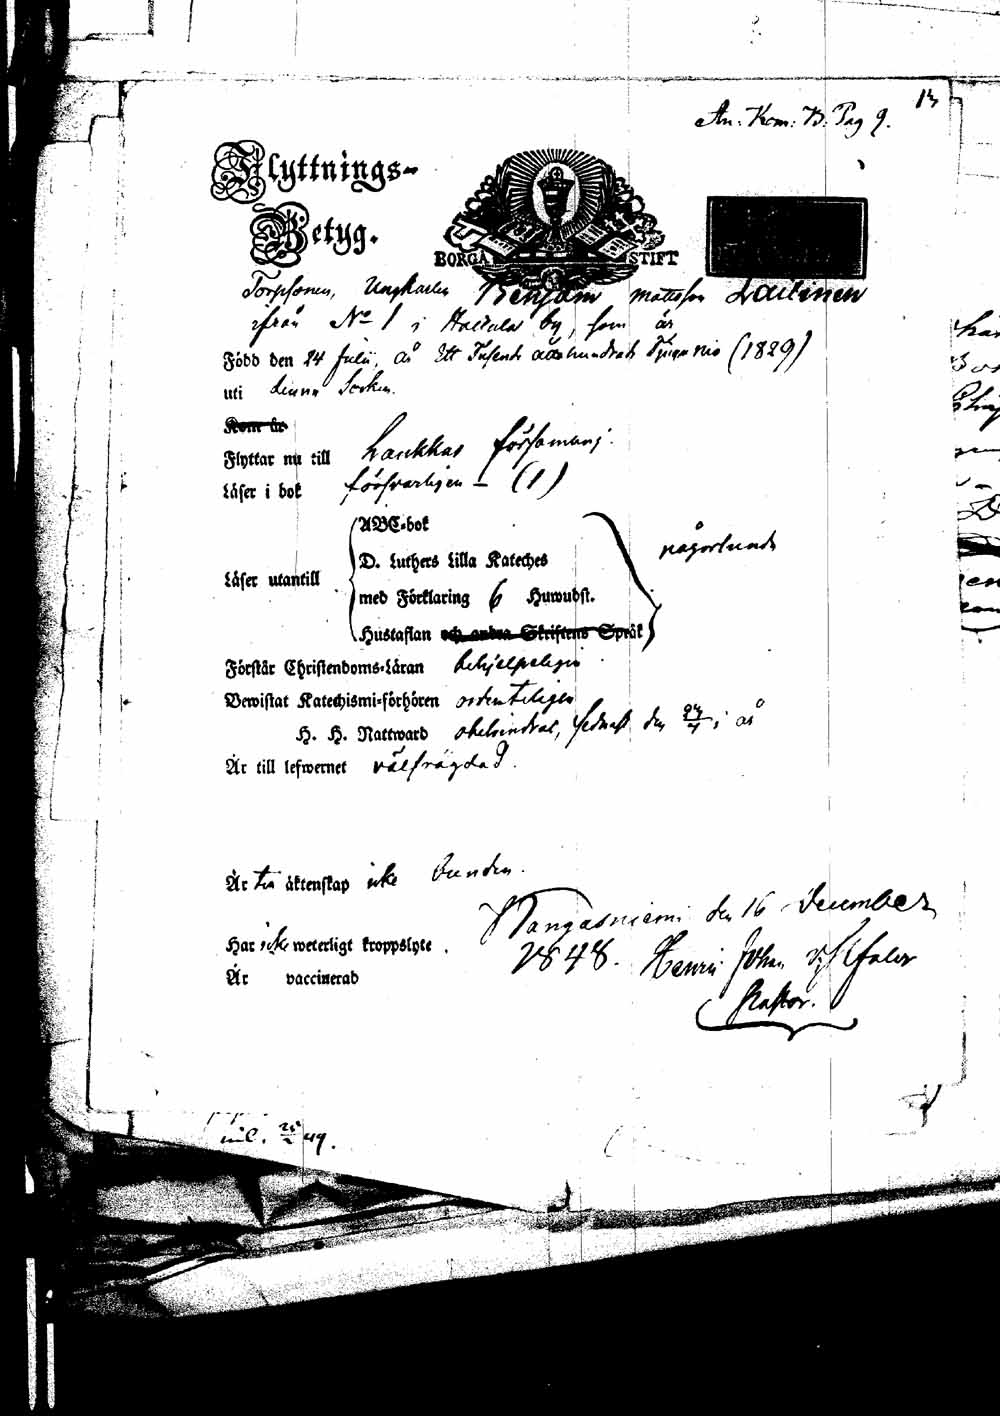 13
An: Kom: B: Pag 9.
Flyttnings-
Betyg.
BORGÅ STIFT
Torpsonen, Ungkarlen Benjam Mattsson Laitinen
ifrån No 1 i by, som är
Född den 24 Julii, år Ett Tusende Åttahundrade Tjugunio (1829)
uti denna Socken.
Kom år
Flyttar nu till Laukkas församling.
Läser i bok försvarligen – (1)
ABC-bok
D. Luthers Lilla Kateches
Läser utantill
med Förklaring 6 Huwudst.
någorlunda
Hustaflan och andra Skriftens Språk
Förstår Christendoms-Läran behjelpeligen
Bewistat Katechismi-förhören ordenteligen
H. H. Nattward obehindrat, sednast den i år
Är till lefwernet välfrägdad.
Är till äktenskap icke bunden.
Kangasniemi den 16 December
Har icke weterligt kroppslyte.
1848. Henric Johan
Är vaccinerad
Pastor.
inl. 49.